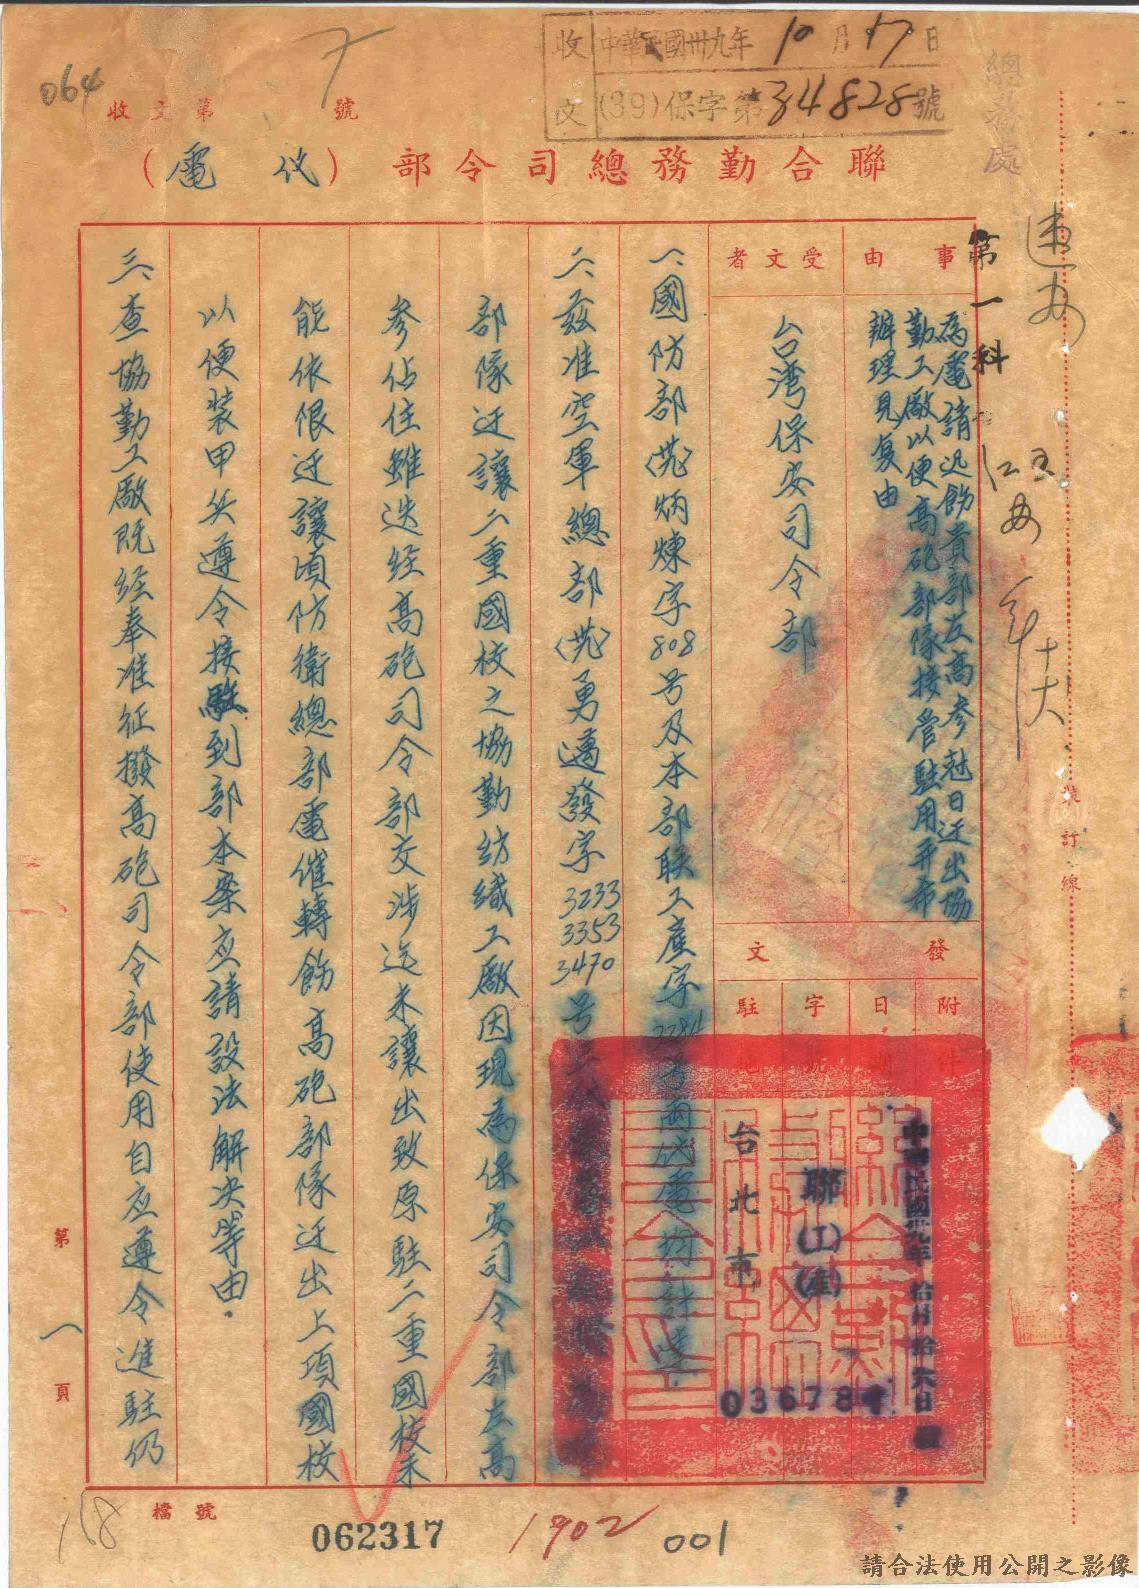 收文 中華民國卅九年10月17日
(39)保字第34828號
064
收文第 號
聯合勤務總司令部(代電)
總務處
第一科
事由
為電請迅飭貴部左高參尅日迁出協
勤工廠以便高砲部隊接管駐用并希
辦理見复由
受文者
台灣保安司令部
發文
附件
日期
中華民國卅九年拾月拾六日
字號
聯(工)(產)
036784
駐地
台北市
一、國防部(卅九)炳煉字808号及本部联工產字 号兩代電
二、茲准空軍總部(卅九)勇邁發字3233 3353 3470号
部隊迁讓二重國校之協勤紡織工廠因現為保安司令部左高
參佔住雖迭経高砲司令部交涉迄未讓出致原駐二重國校未
能依限迁讓頃防衛總部電催轉飭高砲部隊迁出上項國校
以便裝甲兵遵令接駐到部本案应請設法解决等由.
三、查協勤工廠既経奉准征撥高砲司令部使用自应遵令進駐仍
裝訂線
第一頁
檔號
062317
1902
001
168
請合法使用公開之影像